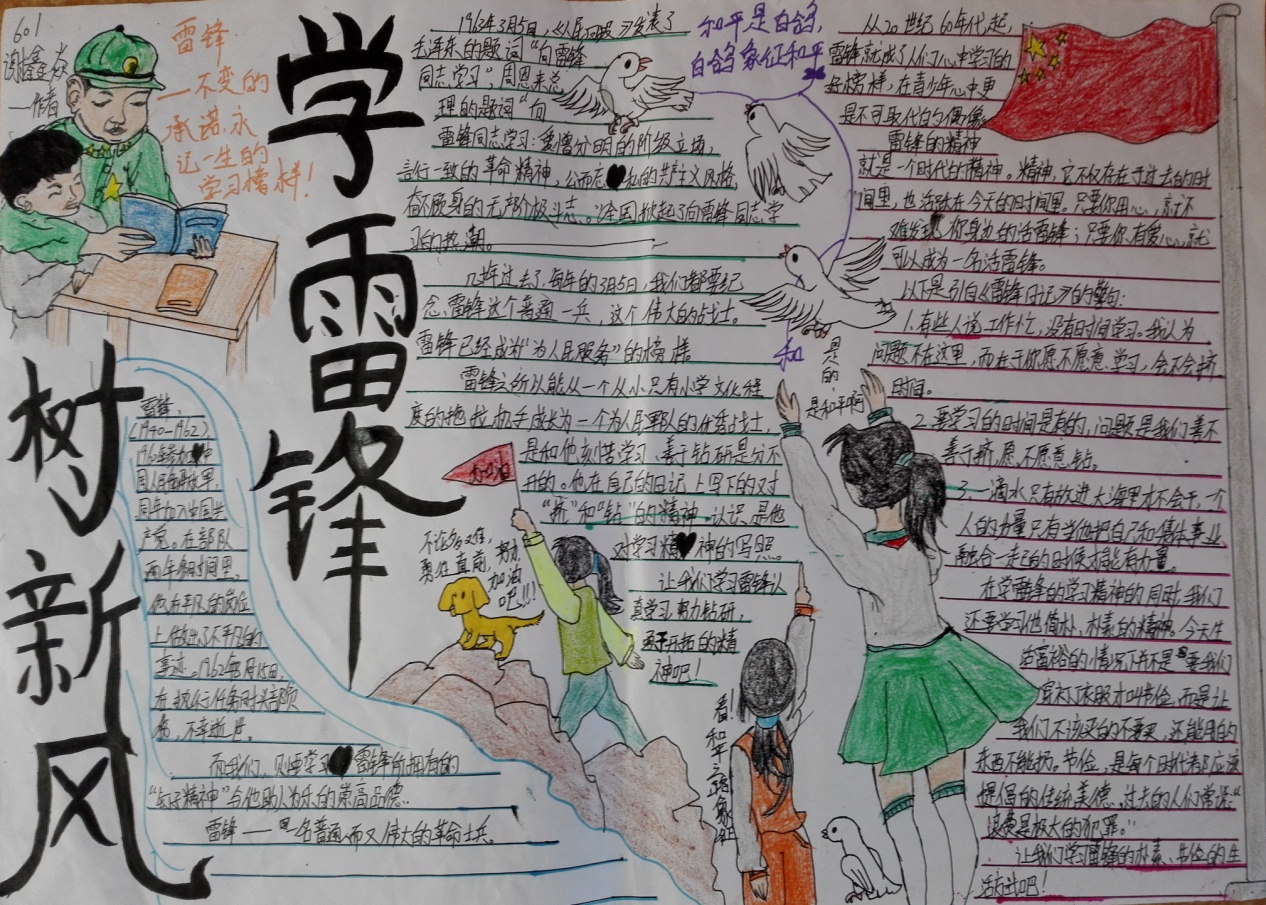 601
谢鑫焱
—作者
雷锋
—不变的
承诺,永
记一生的
学习榜样!
学雷锋
树新风
雷锋,
(1940-1962)
同年加入中国共
产党。在部队
两年多时间里,
他在平凡的岗位
上做出了不平凡的
事迹。1962年8月15日,
在执行任务时头部负
伤,不幸逝世。
而我们,则要学习雷锋所拥有的
“钉子精神”与他助人为乐的崇高品德…
雷锋——是一名普通而又伟大的革命士兵。
1963年3月5日,《人民日报》发表了
毛泽东的题词“向雷锋
同志学习”周恩来总
理的题词“向
雷锋同志学习:爱憎分明的阶级立场,
言行一致的革命精神,公而忘私的共产主义风格,
奋不顾身的无产阶级斗志。”全国掀起了向雷锋同志学
习的热潮。
几十年过去了,每年的3月5日,我们都要纪
念雷锋这个普通一兵,这个伟大的战士。
雷锋已经成为“为人民服务”的榜样。
雷锋之所以能从一个从小只有小学文化程
度的拖拉机手成长为一个为人民军人的优秀战士,
是和他刻苦学习、善于钻研是分不
开的。他在自己的日记上写下的对
“挤”和“钻”的精神认识,是他
对学习精神的写照。
让我们学习雷锋认
真学习,努力钻研,
勇于开拓的精
神吧!
加油
不论多艰难,
勇往直前,努力,
加油
吧!!!
和平是白鸽,
白鸽象征和平
和
是真的,
是和平啊
看!和平之路象征
从20世纪60年代起,
雷锋就成了人们心中学习的
好榜样,在青少年心中更
是不可取代的偶像。
雷锋的精神
就是一个时代的精神。精神,它不仅存在于过去的时
间里,也活跃在今天的时间里,只要你用心,就不
难发现你身边的活雷锋;只要你有爱心,就
可以成为一名活雷锋。
以下是引自《雷锋日记》的警句:
1.有些人说工作忙,没有时间学习。我认为
问题不在这里,而在于你愿不愿意学习,会不会挤
时间。
2.要学习的时间是有的,问题是我们善不
善于挤,愿不愿意钻。
3.一滴水只有放进大海里才不会干,一个
人的力量只有当他把自己和集体事业
融合一起的时候才能有力量。
在学雷锋的学习精神的同时,我们
还要学习他俭朴、朴素的精神。今天生
活富裕的情况下并不是要我们
穿补丁衣服才叫节俭,而是让
我们不该买的不要买,还能用的
东西不能扔。节俭,是每个时代都应该
提倡的传统美德,过去的人们常说“
浪费是极大的犯罪。”
让我们学习雷锋的朴素、节俭的生
活方式吧!